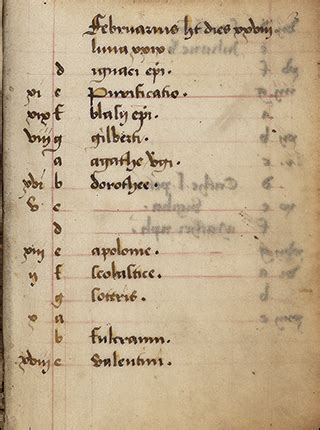 Februarius ht dies xxviii.
luna xxix
d ignaci epi.
xi e Purificatio.
xix f blasii epi.
viii g gilberti.
a agathe vgi.
xvi b dorothee.
v c
d
xiii e apolonie.
ii f scolastice.
g soteris.
x a
b fulcranni.
xviii c valentini.